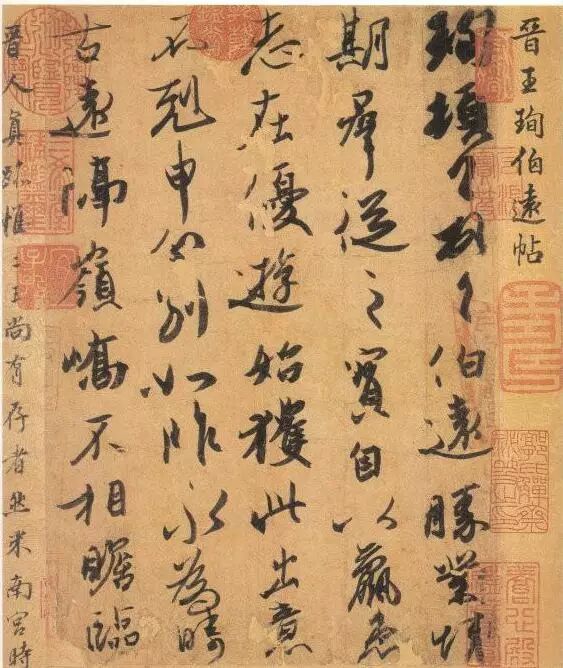 晋王珣伯遠帖
珣頓首頓首伯遠勝業情
期群從之寶自以羸患
志在優遊始獲此出意
不剋申分別如昨永為疇
古遠隔嶺嶠不相瞻臨
晉人真跡惟二王尚有存者然米南宮時